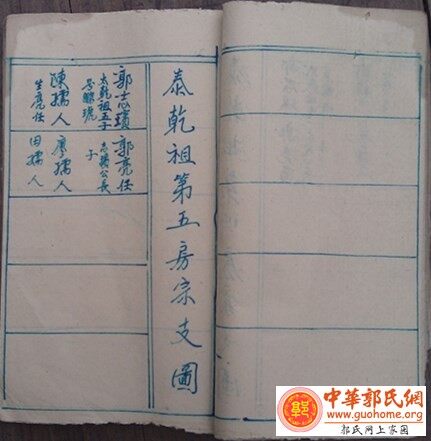 泰乾祖第五房宗支圖
郭志瓊
太乾祖五子
号
陳孺人
生亮任
郭亮任
志瓊公長
子
廖孺人
田孺人
中華郭氏網
www.guohome.org
郭氏网上家園